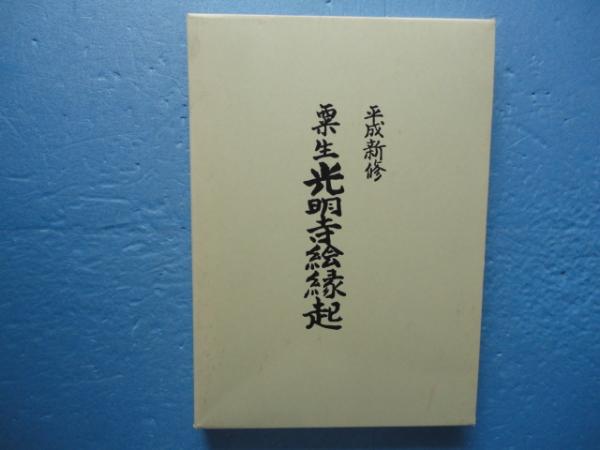 平成新修
粟生光明寺絵縁起